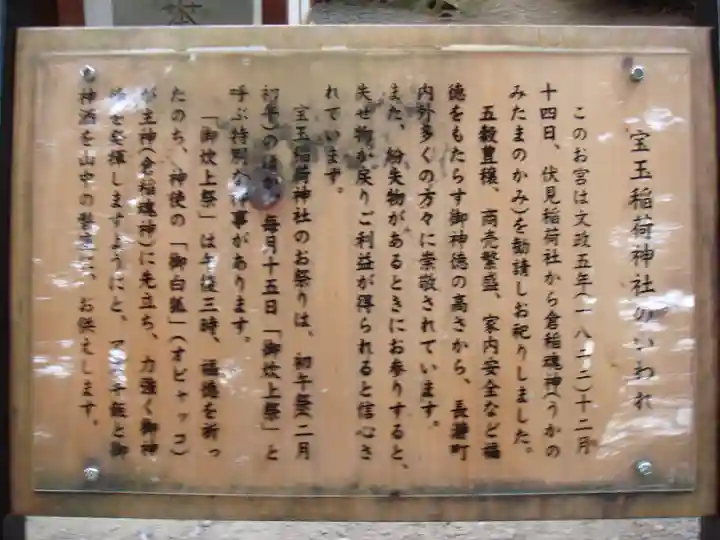 宝玉稲荷神社のいわれ
このお宮は文政五年(一八二二)十二月
十四日、伏見稲荷社から倉稲魂神(うかの
みたまのかみ)を勧請しお祀りしました。
五穀豊穣、商売繁盛、家内安全など福
徳をもたらす御神徳の高さから、長瀞町
内外多くの方々に崇敬されています。
また、紛失物があるときにお参りすると、
失せ物が戻りご利益が得られると信心さ
れています。
宝玉稲荷神社のお祭りは、初午祭(二月
初午)のほか、毎月十五日「御炊上祭」と
呼ぶ特別な行事があります。
「御炊上祭」は午後三時、福徳を祈っ
たのち、神使の「御白狐」(オビャッコ)
が主神(倉稲魂神)に先立ち、力強く御神
を発揮しますようにと、飯と御
神酒を山中の、お供えします。